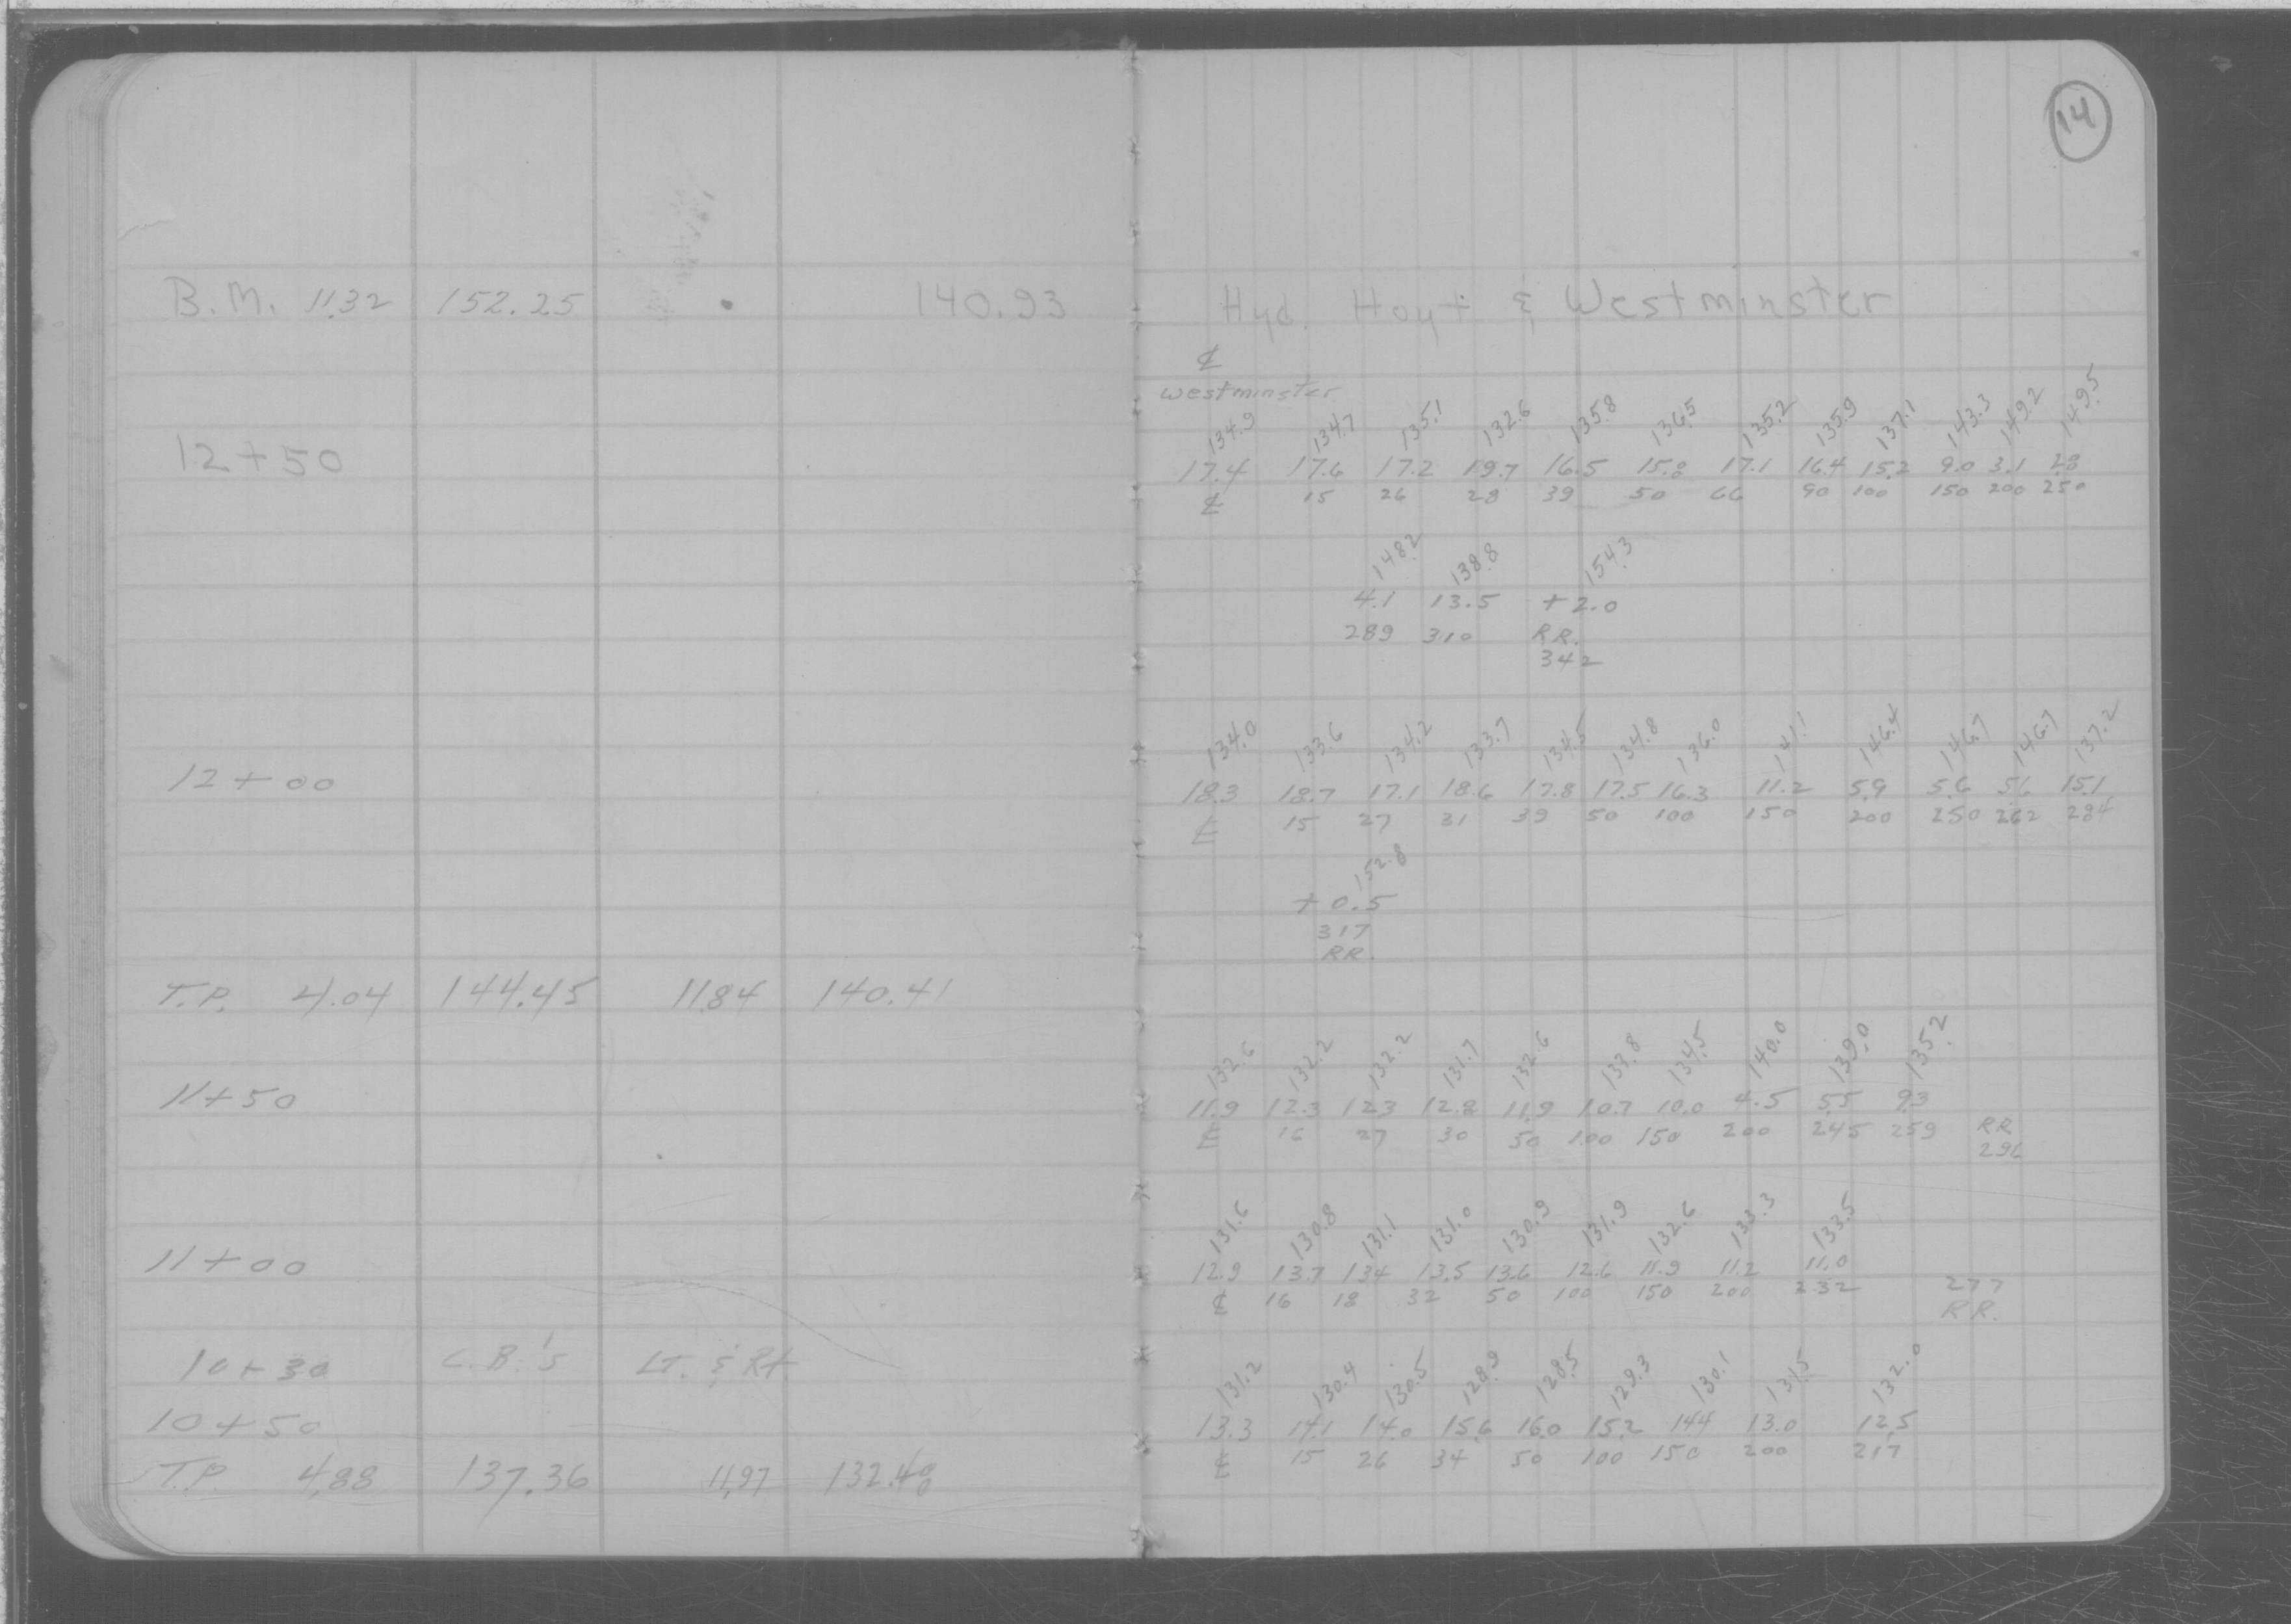 14
B.M. 11.32 152.25 140.93 Hyd. Hoyt & Westminster
℄
Westminster
134.9 134.7 135.1 132.6 135.8 136.5 135.2 135.9 137.1 143.3 149.2 149.5
12+50 17.4 17.6 17.2 19.7 16.5 15.8 17.1 16.4 15.2 9.0 3.1 2.8
℄ 15 26 28 39 50 66 90 100 150 200 250
148.2 138.8 154.3
4.1 13.5 +2.0
289 310 RR.
342
134.0 133.6 134.2 133.7 134.5 134.8 136.0 141.1 146.4 146.7 146.7 137.2
12+00 18.3 18.7 17.1 18.6 17.8 17.5 16.3 11.2 5.9 5.6 5.6 15.1
℄ 15 27 31 39 50 100 150 200 250 262 284
152.8
+0.5
317
RR.
T.P. 4.04 144.45 11.84 140.41
132.6 132.2 132.2 131.7 132.6 133.8 134.5 140.0 139.0 135.2
11+50 11.9 12.3 12.3 12.8 11.9 10.7 10.0 4.5 5.5 9.3
℄ 16 27 30 50 100 150 200 245 259 RR
296
131.6 130.8 131.1 131.0 130.9 131.9 132.6 133.3 133.5
11+00 12.9 13.7 13.4 13.5 13.6 12.6 11.9 11.2 11.0
℄ 16 18 32 50 100 150 200 232 277
RR.
10+30 C.B.'s LT. & Rt.
131.2 130.4 130.5 128.9 128.5 129.3 130.1 131.5 132.0
10+50 13.3 14.1 14.0 15.6 16.0 15.2 14.4 13.0 12.5
℄ 15 26 34 50 100 150 200 217
T.P. 4.88 137.36 11.97 132.48